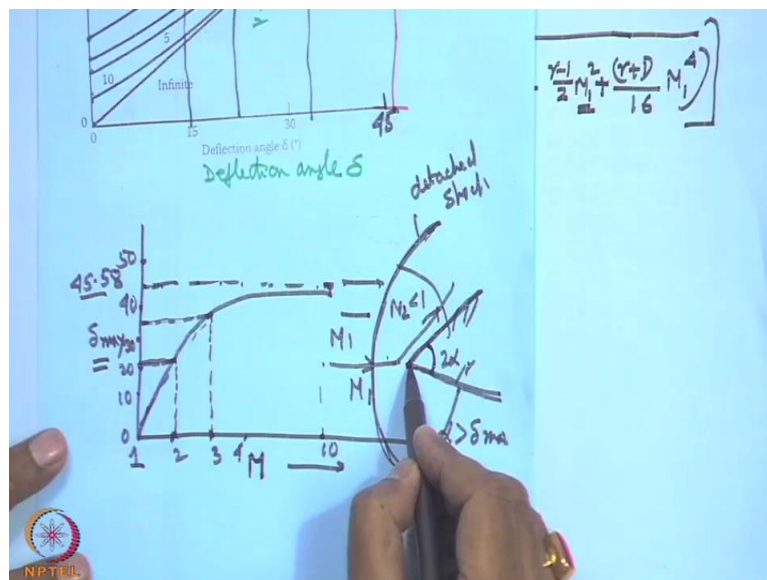 5
10
Infinite
0
0 15 30 45
Deflection angle δ (°)
Deflection angle δ
γ-1/2 M₁² + (γ+1)/16 M₁⁴
detached
shock
50
45.58
40
δmax
20
10
0
1 2 3 4 10
M
M₁
M₁
M₂<1
2α
α > δmax
NPTEL